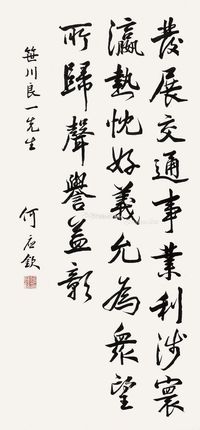 發展交通事業利涉寰
瀛熱忱好義允為眾望
所歸聲譽益彰
笹川良一先生
何应欽